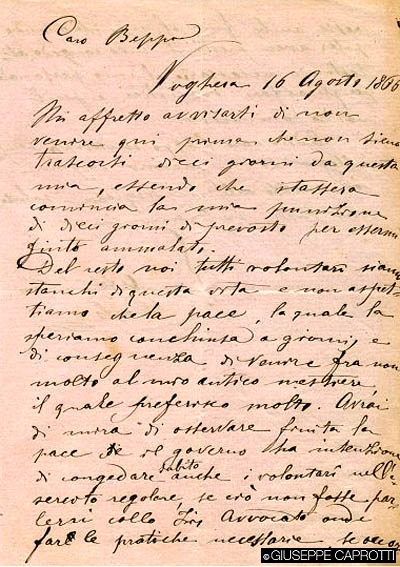 Caro Beppe
Voghera 16 Agosto 1866
Mi affretto avvisarti di non
venire qui prima che non siano
trascorsi dieci giorni da questa
mia, essendo che stassera
comincia la mia punizione
di dieci giorni di prevosto per essermi
finto ammalato.
Del resto noi tutti volontari siamo
stanchi di questa vita e non aspet-
tiamo che la pace, la quale la
speriamo conchiusa a giorni, e
di conseguenza di venire fra non
molto al mio antico mestiere
il quale preferisco molto. Avrai
di mira di osservare finita la
pace se il governo ha intenzione
di congedare subito anche i volontari nell'e-
sercito regolare, se ciò non fosse par-
lersi collo Avvocato onde
fare le pratiche necessarie
©GIUSEPPE CAPROTTI